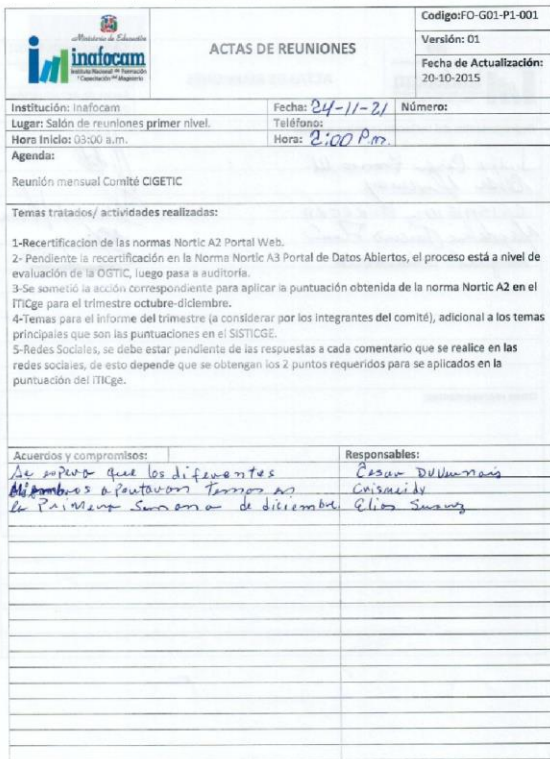 Ministerio de Educación
inafocam
Instituto Nacional de Formación
y Capacitación del Magisterio
ACTAS DE REUNIONES
Codigo:FO-G01-P1-001
Versión: 01
Fecha de Actualización:
20-10-2015
Institución: Inafocam
Fecha: 24-11-21
Número:
Lugar: Salón de reuniones primer nivel.
Teléfono:
Hora Inicio: 03:00 a.m.
Hora: 2:00 P.m.
Agenda:
Reunión mensual Comité CIGETIC
Temas tratados/ actividades realizadas:
1-Recertificacion de las normas Nortic A2 Portal Web.
2- Pendiente la recertificación en la Norma Nortic A3 Portal de Datos Abiertos, el proceso está a nivel de
evaluación de la OGTIC, luego pasa a auditoría.
3-Se sometió la acción correspondiente para aplicar la puntuación obtenida de la norma Nortic A2 en el
ITICge para el trimestre octubre-diciembre.
4-Temas para el informe del trimestre (a considerar por los integrantes del comité), adicional a los temas
principales que son las puntuaciones en el SISTICGE.
5-Redes Sociales, se debe estar pendiente de las respuestas a cada comentario que se realice en las
redes sociales, de esto depende que se obtengan los 2 puntos requeridos para se aplicados en la
puntuación del ITICge.
Acuerdos y compromisos:
Responsables:
Se espera que los diferentes
Cesar
miembros temas en
Crismeidy
la Primera Semana de diciembre.
Elias